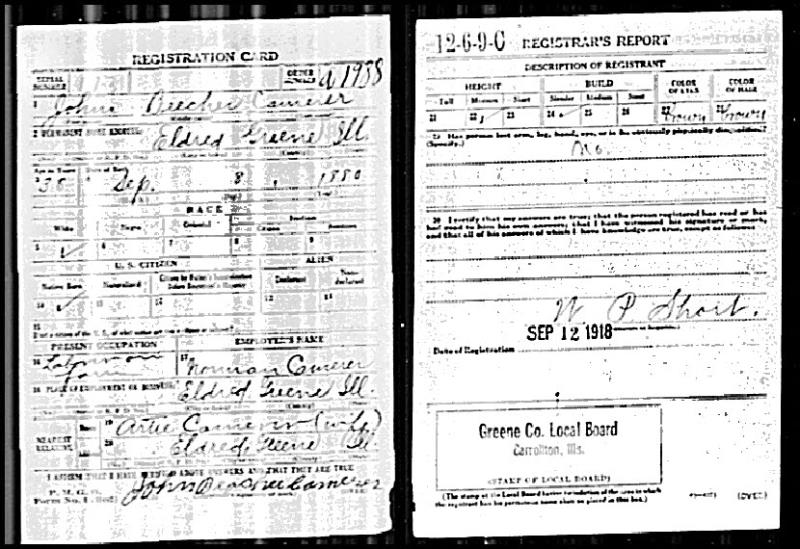 REGISTRATION CARD
SERIAL NUMBER
ORDER NUMBER A 1938
1 John Beecher Camerer
2 PERMANENT HOME ADDRESS:
Eldred Greene Ill.
Age in Years
Date of Birth
38 Sep. 8 1880
RACE
White Negro Oriental Indian
Citizen
5 6 7 8 9
U. S. CITIZEN ALIEN
Native Born Naturalized
Declarant Non-declarant
10 11 12 13 14
15
PRESENT OCCUPATION EMPLOYER'S NAME
16 Labor on farm 17 Norman Camerer
18 PLACE OF EMPLOYMENT OR BUSINESS:
Eldred Greene Ill.
NEAREST RELATIVE
Name 19 Artie Camerer (wife)
20 Eldred Greene Ill
I AFFIRM THAT I HAVE VERIFIED ABOVE ANSWERS AND THAT THEY ARE TRUE
P. M. G. O.
Form No. 1
John Camerer
12-6-9-C REGISTRAR'S REPORT
DESCRIPTION OF REGISTRANT
HEIGHT BUILD COLOR OF EYES COLOR OF HAIR
Tall Medium Short Slender Medium Stout
21 22 23 24 25 26 27 Brown 28 Brown
29 Has person lost arm, leg, hand, eye, or is he obviously physically disqualified?
(Specify.)
No.
30 I certify that my answers are true; that the person registered has read or has
had read to him his own answers; that I have witnessed his signature or mark,
and that all of his answers of which I have knowledge are true, except as follows:
W P Short.
Date of Registration SEP 12 1918
Greene Co. Local Board
Carrollton, Ills.
(STAMP OF LOCAL BOARD)
(The stamp of the Local Board having jurisdiction of the area in which
the registrant has his permanent home shall be placed in this box.)
(OVER)